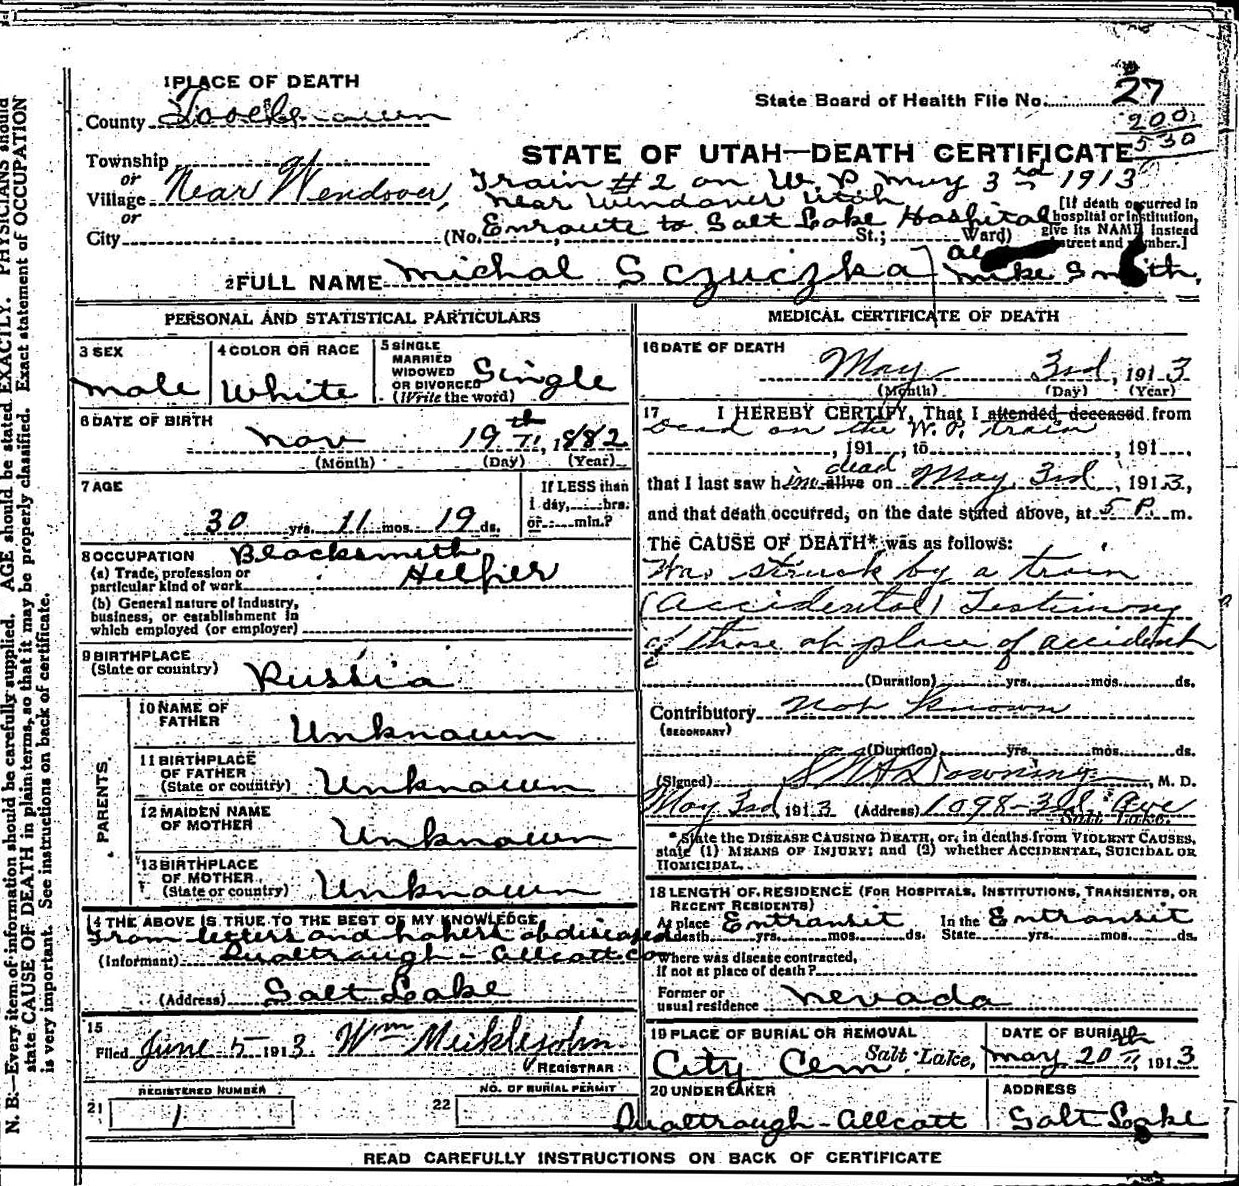 1 PLACE OF DEATH
County Tooele
Township
or
Village Near Wendover,
or
City
State Board of Health File No. 27
200
530
STATE OF UTAH—DEATH CERTIFICATE
Train #2 on W. P. May 3rd 1913
near Windover Utah
(No. Enroute to Salt Lake Hospital St.; Ward)
[If death occurred in
hospital or institution,
give its NAME instead
of street and number.]
2 FULL NAME Michal Sczuczka
Mike Smith.
PERSONAL AND STATISTICAL PARTICULARS
3 SEX
male
4 COLOR OR RACE
White
5 SINGLE
MARRIED
WIDOWED
OR DIVORCED
(Write the word)
Single
6 DATE OF BIRTH
Nov 19th, 1882
(Month) (Day) (Year)
7 AGE
30 yrs. 11 mos. 19 ds.
If LESS than
1 day, hrs.
or min.?
8 OCCUPATION
(a) Trade, profession or
particular kind of work
Blacksmith
Helper
(b) General nature of industry,
business, or establishment in
which employed (or employer)
9 BIRTHPLACE
(State or country)
Russia
PARENTS
10 NAME OF
FATHER
Unknown
11 BIRTHPLACE
OF FATHER
(State or country)
Unknown
12 MAIDEN NAME
OF MOTHER
Unknown
13 BIRTHPLACE
OF MOTHER
(State or country)
Unknown
14 THE ABOVE IS TRUE TO THE BEST OF MY KNOWLEDGE
From letters and papers of diseased
(Informant)
(Address) Salt Lake
15
Filed June 5 1913. Wm Meiklejohn
REGISTRAR
REGISTERED NUMBER
21 1
NO. OF BURIAL PERMIT
22
MEDICAL CERTIFICATE OF DEATH
16 DATE OF DEATH
May 3rd, 1913
(Month) (Day) (Year)
17 I HEREBY CERTIFY, That I attended deceased from
Dead on the W. P. train
, 191 , to , 191 ,
dead
that I last saw him alive on May 3rd, 1913,
and that death occurred, on the date stated above, at 5 P. m.
The CAUSE OF DEATH* was as follows:
Was struck by a train
(Accidental) Testimony
of those at place of accident
(Duration) yrs. mos. ds.
Contributory Not known
(SECONDARY)
(Duration) yrs. mos. ds.
(Signed) Downing, M. D.
May 3rd, 1913 (Address) 1098-3rd Ave
Salt Lake.
*State the DISEASE CAUSING DEATH, or, in deaths from VIOLENT CAUSES,
state (1) MEANS OF INJURY; and (2) whether ACCIDENTAL, SUICIDAL OR
HOMICIDAL.
18 LENGTH OF RESIDENCE (FOR HOSPITALS, INSTITUTIONS, TRANSIENTS, OR
RECENT RESIDENTS)
At place Entransit In the Entransit
of death yrs. mos. ds. State yrs. mos. ds.
Where was disease contracted,
if not at place of death?
Former or
usual residence Nevada
19 PLACE OF BURIAL OR REMOVAL
City Cem Salt Lake,
DATE OF BURIAL
May 20th, 1913
20 UNDERTAKER
ADDRESS
Salt Lake
READ CAREFULLY INSTRUCTIONS ON BACK OF CERTIFICATE
N. B.—Every item of information should be carefully supplied. AGE should be stated EXACTLY. PHYSICIANS should
state CAUSE OF DEATH in plain terms, so that it may be properly classified. Exact statement of OCCUPATION
is very important. See instructions on back of certificate.